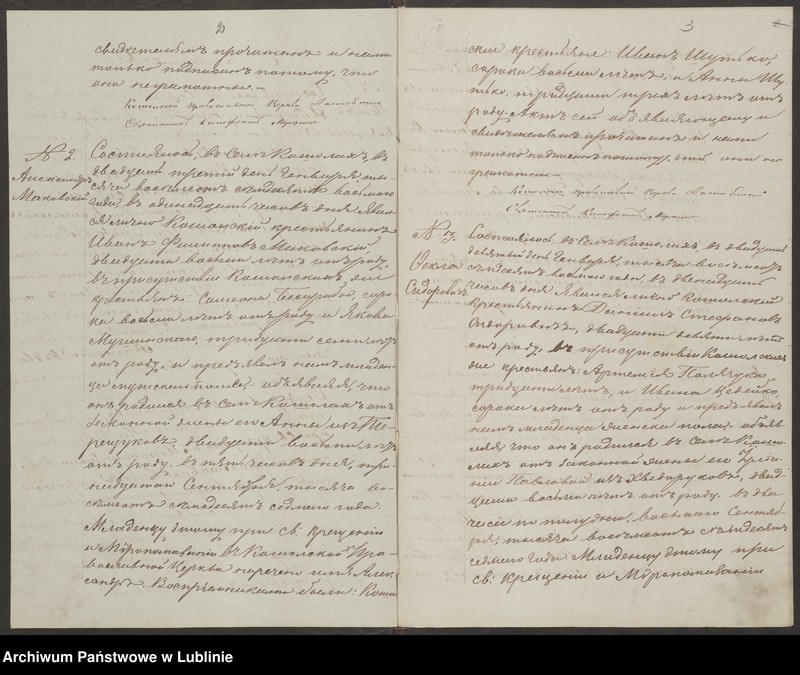 2
свидетелямъ прочитанъ и нами
только подписанъ потому, что
они неграмотны.
№ 2.
Александръ
Маковскій
Состоялось въ селѣ Кошолахъ въ
двадцать третій день Генваря, ты-
сяча восемьсотъ семьдесятъ восьмого
года, въ одинадцать часовъ дня. Явил-
ся лично Кошолскій крестьянинъ
Иванъ Филиповъ Маковскій
двадцати восьми лѣтъ отъ роду
въ присутствіи Кошолскихъ же
крестьянъ: Самсона соро-
ка восьми лѣтъ отъ роду и Якова
тридцати семи лѣтъ
отъ роду, и предъявилъ намъ младен-
ца мужескаго пола, объявляя, что
онъ родился въ селѣ Кошолахъ отъ
законной жены его Анны изъ
двадцати восьми лѣтъ
отъ роду, въ пять часовъ дня, три-
надцатаго Сентября, тысяча во-
семьсотъ семьдесятъ седьмого года.
Младенцу этому при св. Крещеніи
и Мѵропомазаніи въ Кошолской Пра-
вославной Церкви наречено имя Алек-
сандръ. Воспріемниками были: Кошол-
3
скіе крестьяне: Иванъ Шутько,
сорока восьми лѣтъ, и Анна Шу-
тько, тридцати трехъ лѣтъ отъ
роду. Актъ сей объявляющему и
свидетелямъ прочитанъ и нами
только подписанъ потому, что они не
грамотны.
№ 3.
Ѳекла
Сидоровичъ
Состоялось въ селѣ Кошолахъ, въ двадцать
девятый день Генваря, тысяча восемьсотъ
семьдесятъ восьмого года, въ двенадцать
часовъ дня. Явился лично Кошолскій
крестьянинъ Даніилъ Стефановъ
Сидоровичъ, двадцати девяти лѣтъ
отъ роду, въ присутствіи Кошолскихъ
же крестьянъ: Артемія Полячука
тридцати лѣтъ, и Ивана
сорока лѣтъ отъ роду и предъявилъ
намъ младенца женска пола, объяв-
ляя, что онъ родился въ селѣ Кошо-
лахъ отъ законной жены его
Павловой изъ двад-
цати восьми лѣтъ отъ роду. въ два
часа по полудни, восьмаго Сентяб-
ря, тысяча восемьсотъ семьдесятъ
седьмого года. Младенцу этому при
св: Крещеніи и Мѵропомазаніи
Archiwum Państwowe w Lublinie